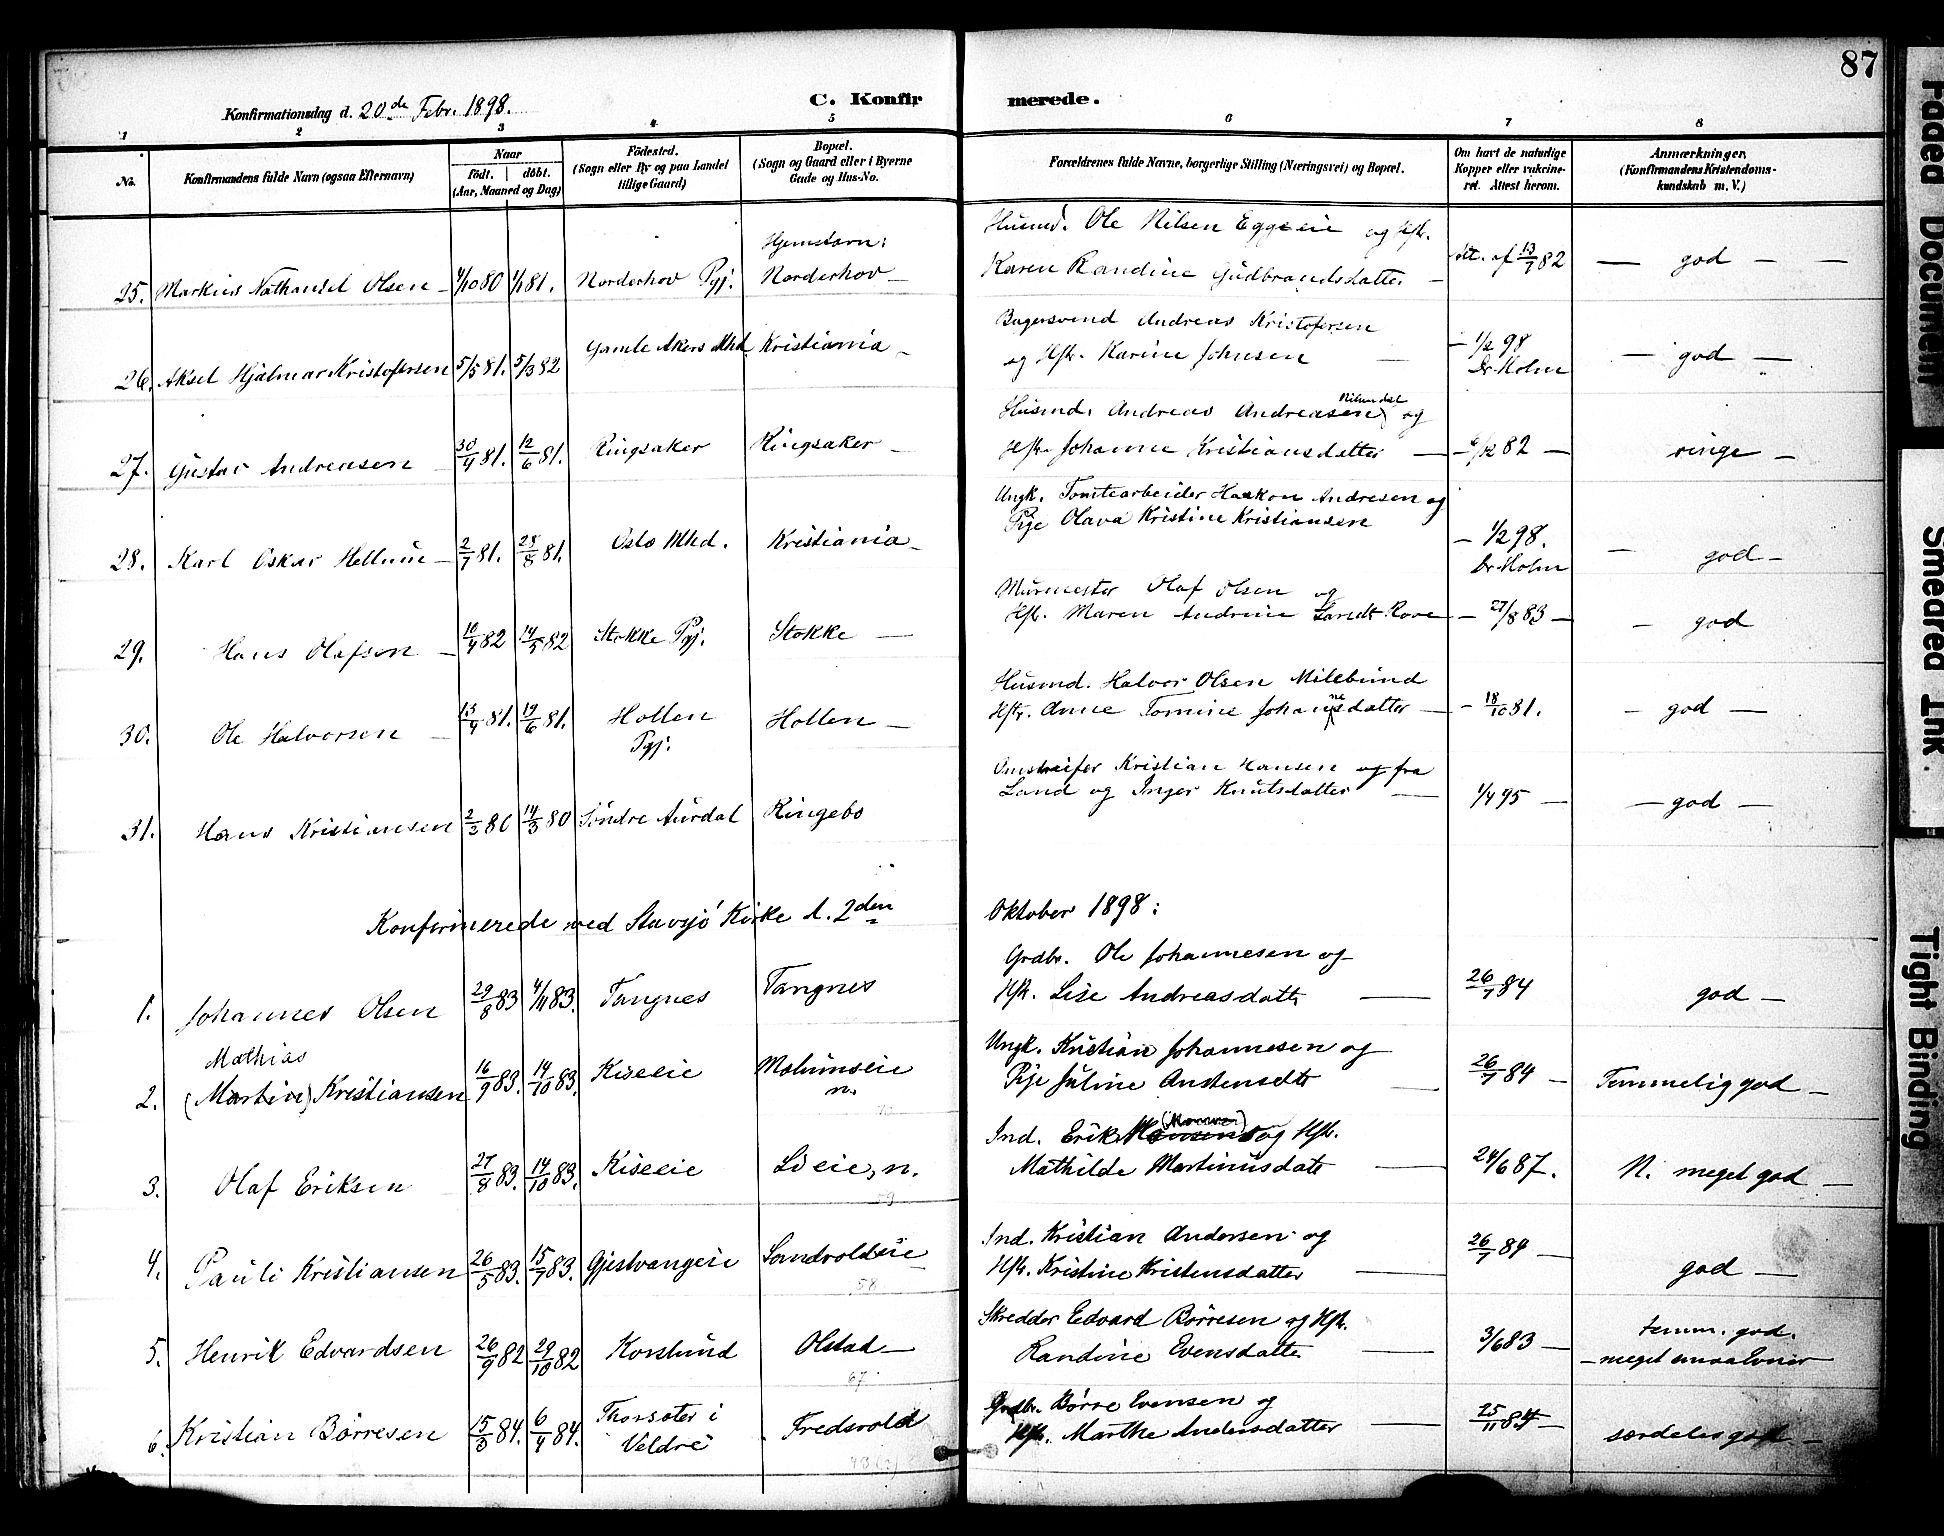 87
Konfirmationsdag d. 20de Febr. 1898.
C. Konfirmerede.
1 2 3 4 5 6 7 8
No. Konfirmandens fulde Navn (ogsaa Efternavn) Naar født. døbt. (Aar, Maaned og Dag) Fødested. (Sogn eller By og paa Landet tillige Gaard) Bopæl. (Sogn og Gaard eller i Byerne Gade og Hus-No. Forældrenes fulde Navne, borgerlige Stilling (Næringsvei) og Bopæl. Om havt de naturlige Kopper eller vaccineret. Attest herom. Anmærkninger. (Konfirmandens Kristendomskundskab m. V.)
Hjemstavn:
25. Markus Nathanael Olsen 4/10 80 1/1 81. Norderhov Pgj. Norderhov Husmd. Ole Nilsen Eggeeie og Hst. Karen Randine Gudbrandsdatter Att. af 13/7 82 god
26. Aksel Hjalmar Kristofersen 5/5 81. 5/3 82 Gamle Akers Mhd. Kristiania Bagersvend Andreas Kristofersen og Hstr. Karine Johnsen 1/2 98 Dr. Holm god
27. Gustav Andreasen 30/4 81. 12/6 81. Ringsaker Ringsaker Husmd. Andreas Andreasen og Hstr. Johanne Kristiansdatter 6/12 82 ringe
28. Karl Oskar Hellum 2/7 81. 28/8 81. Oslo Mhd. Kristiania Ungk. Tomtearbeider Haakon Andresen og Pige Olava Kristine Kristiansen 1/2 98. Dr. Holm god
29. Hans Olafsen 10/4 82 14/5 82 Stokke Pgj. Stokke Murmester Olaf Olsen og Hst. Maren Andrine 27/8 83 god
30. Ole Halvorsen 13/4 81. 19/6 81. Hollen Pgj. Hollen Husmd. Halvor Olsen Milebund Hstr. Anne Tomine Johannesdatter 18/10 81. god
31. Hans Kristiansen 2/3 80 14/3 80 Søndre Aurdal Ringebo Omstreifer Kristian Hansen og fra Land og Inger Knutsdatter 1/4 95 god
Konfirmerede ved Stavsjø Kirke d. 2den Oktober 1898:
1. Johannes Olsen 29/8 83 4/11 83. Tangnes Tangnes Grdbr. Ole Johannesen og Hst. Lise Andreasdatt. 26/7 84 god
2. Mathias (Martin) Kristiansen 16/9 83. 14/10 83. Kiseeie Molunseie n. Ungk. Kristian Johannesen og Pige Juline Anstensdtr 26/7 84 Temmelig god
3. Olaf Eriksen 27/8 83. 14/10 83. Kiseeie Lieie, n. 59 Ind. Erik Hansen og Hst. Mathilde Martinusdatr 24/6 87. N. meget god
4. Pauli Kristiansen 26/5 83. 15/7 83. Gjestvangeie Sandvoldeie 58 Ind. Kristian Andersen og Hst. Kristine Kristensdatter 26/7 84 god
5. Henrik Edvardsen 26/9 82 29/10 82 Korslund Olstad 67 Skredder Edvard Børresen og Hst. Randine Evensdatte. 3/6 83 temm. god. meget smaa Evner
6. Kristian Børresen 15/3 84. 6/4 84. Thorsæter i Veldre Fredsvold Grdbr. Børre Evensen og Hst. Marthe Andersdatter 25/11 84 særdeles god
Faded Document
Smeared Ink.
Tight Binding